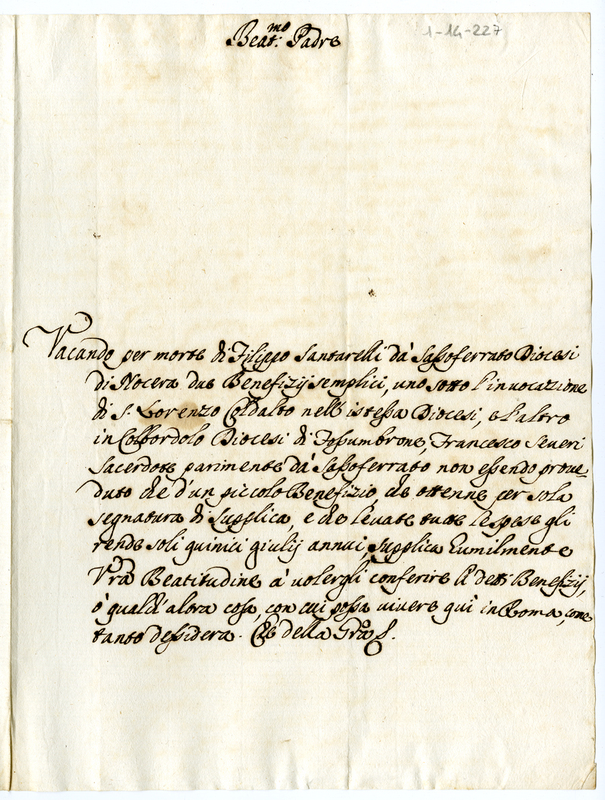 1-14-227
Beat.mo Padre
Vacando per morte di Filippo Santarelli dà Sassoferrato Diocesi
di Nocera due Benefizij semplici, uno sotto l'invocazione
di S. Lorenzo Coldalto nell'istessa Diocesi, e l'altro
in Colbordolo Diocesi di Fossumbrone, Francesco Severi
Sacerdote parimente dà Sassoferrato non essendo prove-
duto che d'un piccolo Benefizio, che ottenne per sola
segnatura di Supplica, e che levate tutte le spese gli
rende soli quinici giulij annui, supplica humilmente
Vrã Beatitudine à volergli conferire li detti Benefizij,
ò qualch'altra cosa con cui possa vivere quì in Roma, come
tanto dessidera. Che della Grã